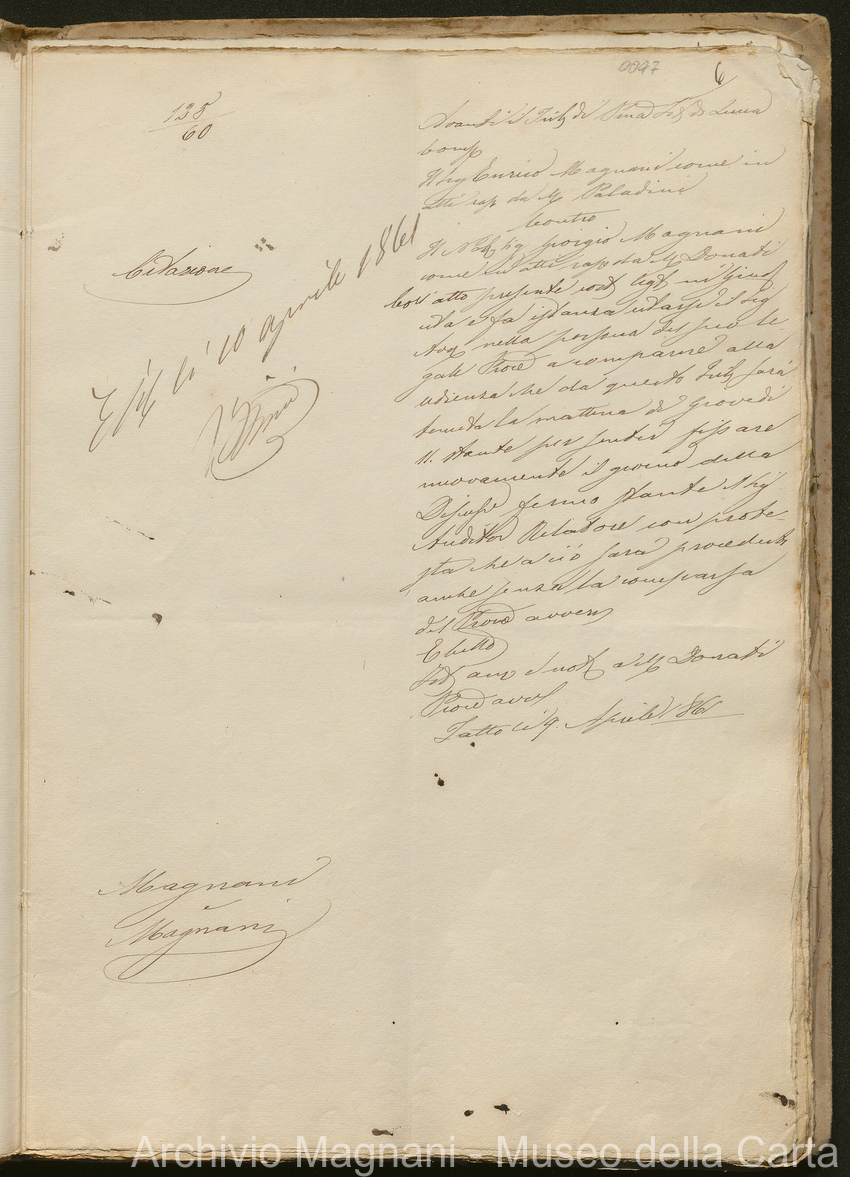 0097
6
135
60
Citazione
Esib li 10 aprile 1861
Magnani
Magnani
Avanti il Trib di Pma Is di Lucca
comp
Il sig Enrico Magnani come in
atti rap da M Paladini
Contro
Il Nob sig Giorgio Magnani
come in atti rap da M Donati
Coll' atto presente
cita e fa istanza citarsi il sig
Avv nella persona del suo le-
gale Proc a comparire alla
udienza che da questo Trib sarà
tenuta la mattina di Giovedì
11. stante per sentir fissare
nuovamente il giorno della
Discuss fermo stante il sig
Auditor Relatore con prote-
sta che a ciò sarà proceduto
anche senza la comparsa
del Proc avvers
E citto
not a M Donati
Proc avv
Fatto li 9. Aprile 1861
Archivio Magnani - Museo della Carta